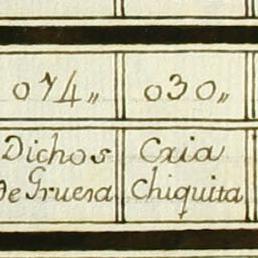 074,, 030,,
Dichos Cria
de Gruesa Chiquita